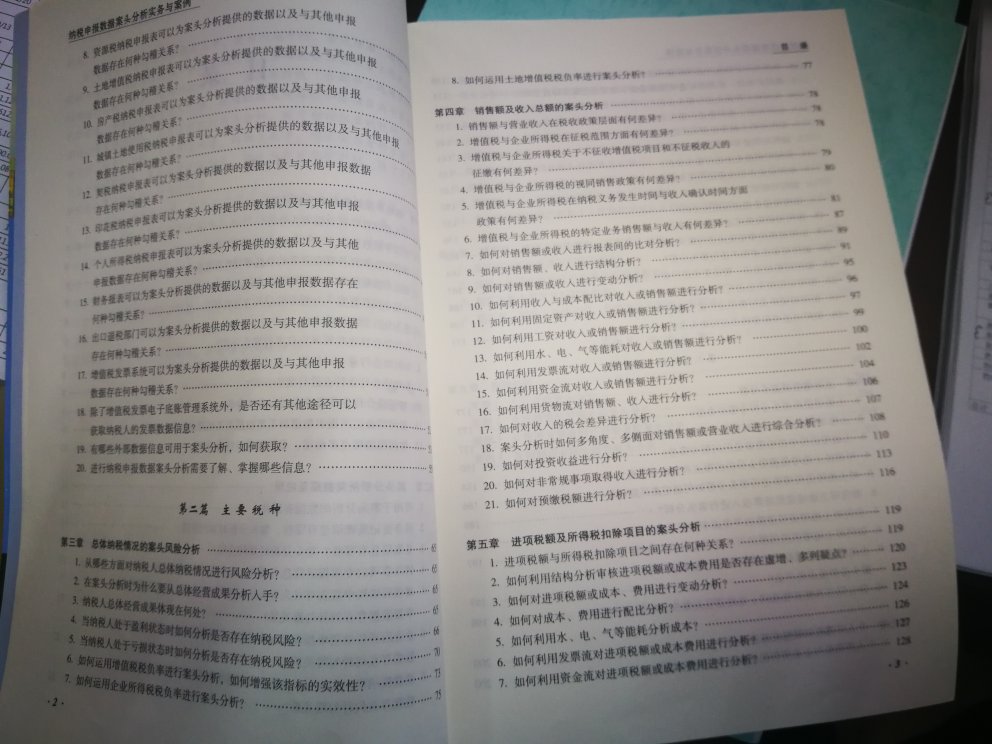 纳税申报数据案头分析实务与案例
8. 资源税纳税申报表可以为案头分析提供的数据以及与其他申报
数据存在何种勾稽关系?
9. 土地增值税纳税申报表可以为案头分析提供的数据以及与其他申报
数据存在何种勾稽关系?
10. 房产税纳税申报表可以为案头分析提供的数据以及与其他申报
数据存在何种勾稽关系?
11. 城镇土地使用税纳税申报表可以为案头分析提供的数据以及与其他申报
数据存在何种勾稽关系?
12. 契税纳税申报表可以为案头分析提供的数据以及与其他申报数据
存在何种勾稽关系?
13. 印花税纳税申报表可以为案头分析提供的数据以及与其他申报
数据存在何种勾稽关系?
14. 个人所得税纳税申报表可以为案头分析提供的数据以及与其他
申报数据存在何种勾稽关系?
15. 财务报表可以为案头分析提供的数据以及与其他申报数据存在
何种勾稽关系?
16. 出口退税部门可以为案头分析提供的数据以及与其他申报数据
存在何种勾稽关系?
17. 增值税发票系统可以为案头分析提供的数据以及与其他申报
数据存在何种勾稽关系?
18. 除了增值税发票电子底账管理系统外，是否还有其他途径可以
获取纳税人的发票数据信息?
19. 有哪些外部数据信息可用于案头分析，如何获取?
20. 进行纳税申报数据案头分析需要了解、掌握哪些信息?
第二篇 主要税种
第三章 总体纳税情况的案头风险分析 65
1. 从哪些方面对纳税人总体纳税情况进行风险分析? 65
2. 在案头分析时为什么要从总体经营成果分析入手? 65
3. 纳税人总体经营成果体现在何处? 65
4. 当纳税人处于盈利状态时如何分析是否存在纳税风险? 66
5. 当纳税人处于亏损状态时如何分析是否存在纳税风险? 70
6. 如何运用增值税税负率进行案头分析，如何增强该指标的实效性? 73
7. 如何运用企业所得税税负率进行案头分析? 75
·2·
目 录
8. 如何运用土地增值税税负率进行案头分析? 77
第四章 销售额及收入总额的案头分析 78
1. 销售额与营业收入在税收政策层面有何差异? 78
2. 增值税与企业所得税在征税范围方面有何差异? 78
3. 增值税与企业所得税关于不征收增值税项目和不征税收入的
征缴有何差异? 79
4. 增值税与企业所得税的视同销售政策有何差异? 80
5. 增值税与企业所得税在纳税义务发生时间与收入确认时间方面
政策有何差异? 81
6. 增值税与企业所得税的特定业务销售额与收入有何差异? 87
7. 如何对销售额或收入进行报表间的比对分析? 89
8. 如何对销售额、收入进行结构分析? 91
9. 如何对销售额或收入进行变动分析? 95
10. 如何利用收入与成本配比对收入或销售额进行分析? 96
11. 如何利用固定资产对收入或销售额进行分析? 97
12. 如何利用工资对收入或销售额进行分析? 99
13. 如何利用水、电、气等能耗对收入或销售额进行分析? 100
14. 如何利用发票流对收入或销售额进行分析? 102
15. 如何利用资金流对收入或销售额进行分析? 104
16. 如何利用货物流对销售额、收入进行分析? 106
17. 如何对收入的税会差异进行分析? 107
18. 案头分析时如何多角度、多侧面对销售额或营业收入进行综合分析? 108
19. 如何对投资收益进行分析? 110
20. 如何对非常规事项取得收入进行分析? 113
21. 如何对预缴税额进行分析? 116
第五章 进项税额及所得税扣除项目的案头分析 119
1. 进项税额与所得税扣除项目之间存在何种关系? 119
2. 如何利用结构分析审核进项税额或成本费用是否存在虚增、多列疑点? 120
3. 如何对进项税额或成本、费用进行变动分析? 123
4. 如何对成本、费用进行配比分析? 124
5. 如何利用水、电、气等能耗分析成本? 126
6. 如何利用发票流对进项税额或成本费用进行分析? 127
7. 如何利用资金流对进项税额或成本费用进行分析? 128
·3·